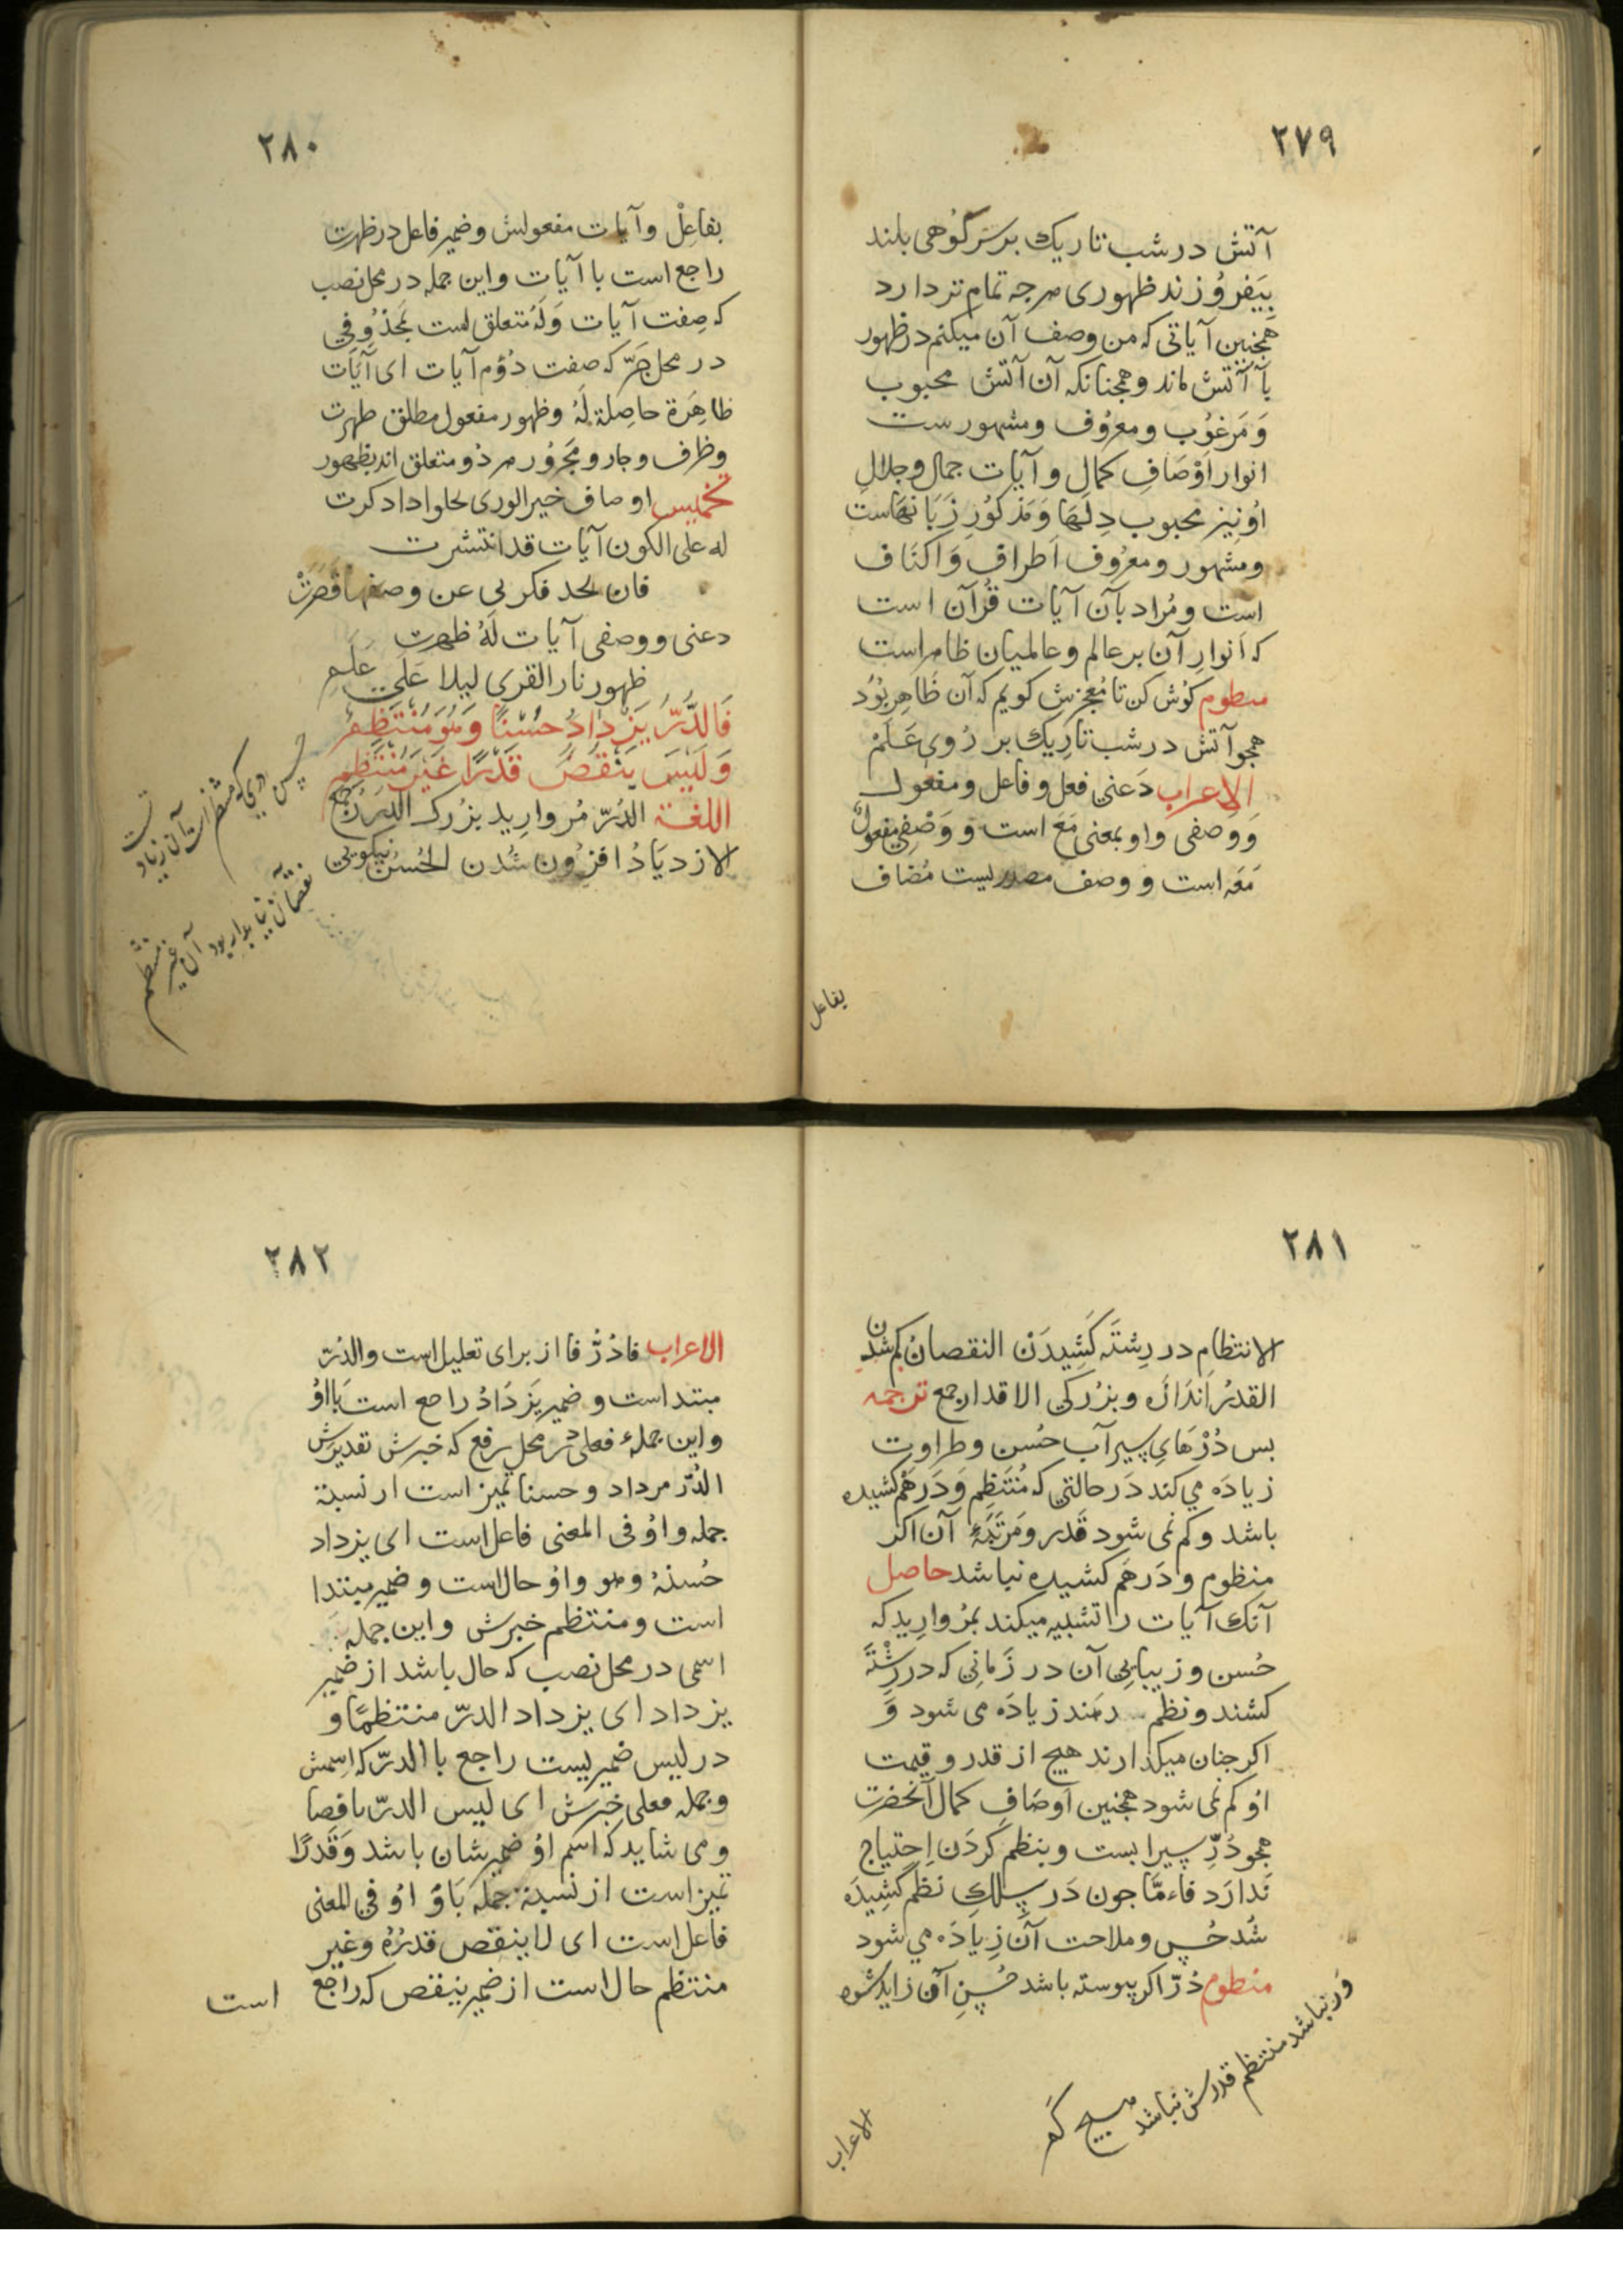 ٢٧٩
آتش در شب تاریك بر سَرکُوهی بلند
بِیَفرُوزند ظهوری هرچه تمام تر دارد
همجنین آیاتی که من وصف آن میکنم در ظهور
بآ آتش ماند و همجنانکه آن آتش محبوب
وَ مَرغُوب و معرُوف و مشهورست
انوار اَوْصَافِ کمال و آیات جمال و جلالِ
اوُ نیز محبوب دِلهَا وَ مَذکُورِ زَبَانهَاست
و مشهور و معرُوف اَطراف وَ اکنَاف
است و مُراد بآن آیات قُرآن است
که اَنوارِ آن بر عالم و عالمیان ظاهر است
منظوم کوُش کن تا مُعجزش کویم که آن ظَاهِر بُوَد
همجو آتش در شب تارِیك بر رُوی عَلَمْ
الاعراب دَعنی فعل و فاعل و مفعول
وَ وصفی واو بمعنی مَعَ است وَ وَصْفِی مفعولٌ
مَعَه است و وصف مصدریست مُضاف
بفاعل
٢٨٠
بفاعِلْ و آیات مفعولش و ضمیر فاعل در ظهرت
راجع است با آیات و این جمله در محل نصب
که صِفت آیات وَلَهُ متعلق است بمَحذُوفی
در محل جَرّ که صفت دُوُم آیات ای آیَات
ظاهِرَة حاصِلة لَهُ و ظهور مفعول مطلق ظهرت
و ظرف و جار و مَجرُور هر دُو متعلق اند بظهور
تخمیس اوصاف خیر الوری لحلوا داد کرت
له علی الکون آیات قد انتشرت
فان لحد فکر بی عن وصفها قَصَرَتْ
دعنی و وصفی آیات لَهُ ظهرت
ظهور نار القری لیلا عَلَی عَلَمِ
فَالدُّرُّ یَزْدَادُ حُسْنًا وَ هُوَ مُنْتَظِمٌ
وَ لَیْسَ یَنْقُصُ قَدْرًا غَیْرَ مُنْتَظِمِ
اللغة الدُرّ مُروارِید بزُرک الدُرَرُ جمع
الازدیَادُ افزُون شُدن الحُسْنُ نیکویی
نقصان نیابد ار بود آن غیر منتظم
٢٨١
الانتظام در رِشتَه کَشِیدَنْ النقصانُ کم شدن
القدرُ اَندَازَه و بزُرکی الاقدار جمع ترجمه
بس دُرْهَایِ سِیرآب حُسن و طراوت
زیادَه می کند دَر حالتی که مُنتَظِم وَ دَرهَمْ کشیده
باشد و کم نمی شود قَدر و مَرتَبَۀ آن اکر
منظوم و دَرهَم کشیده نباشد حاصل
آنك آیات را تشبیه میکند بمُروارِید که
حُسن و زیبایی آن در زَمانِی که در رِشْتَه
کشند و نظم دهند زیادَه می شود وَ
اکر جنان میکذارند هیچ از قدر و قیمت
اوُ کم نمی شود همجنین اَوصَافِ کمال آنحضرت
همجو دُرِّ سیرابست و بنظم کَردَن اِحتیاج
نَدارَد فاءمَّا جون دَر سِلكِ نظم کَشِیدَه
شُد حُسن و ملاحت آن زِیادَه می شود
منظوم دُرّ اکر پیوسته باشد حُسنِ آن زاید شود
وَر نباشد منتظم قدرش نباشد هیچ کَم
الاعراب
٢٨٢
الاعراب فادُرُّ فا از برای تعلیل است و الدُرّ
مبتداست و ضمیر یَزدَادُ راجع است بَااوُ
و این جملۀ فعلی در محل رفع که خبرش تقدیرش
الدُرّ مرداد و حسنا تمیز است از نسبة
جمله و اوُ فی المعنی فاعل است ای یزداد
حُسنهُ و هو واوُ حال است و ضمیر مبتدا
است و منتظم خبرش و این جمله
اسمی در محل نصب که حال باشد از ضمیر
یزداد ای یزداد الدرّ منتظمًا و
در لیس ضمیریست راجع با الدرّ که اِسمش
و جمله فعلی خبَرش ای لیس الدرّ ناقصا
و می شاید که اسم اوُ ضمیر شان باشد وَ قَدرًا
تمیز است از نسبة جمله بَاوُ اوُ فی المعنی
فاعل است ای لا ینقص قدرُهُ و غیر
منتظم حال است از ضمیر ینقص که راجع
است